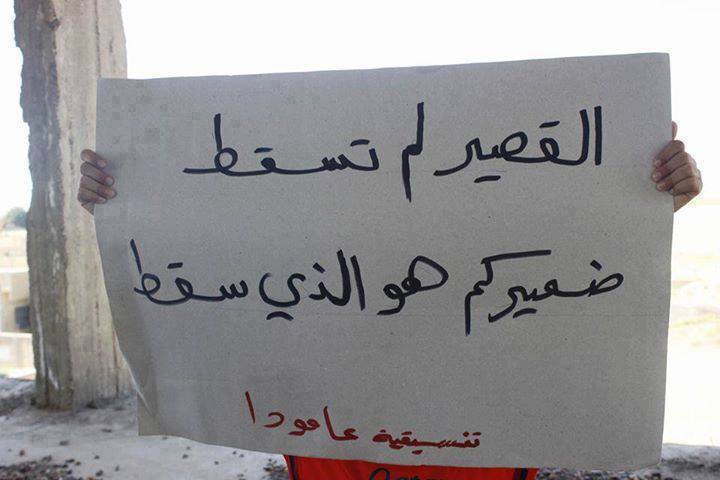 القصير لم تسقط
ضميركم هو الذي سقط
تنسيقية عامودا